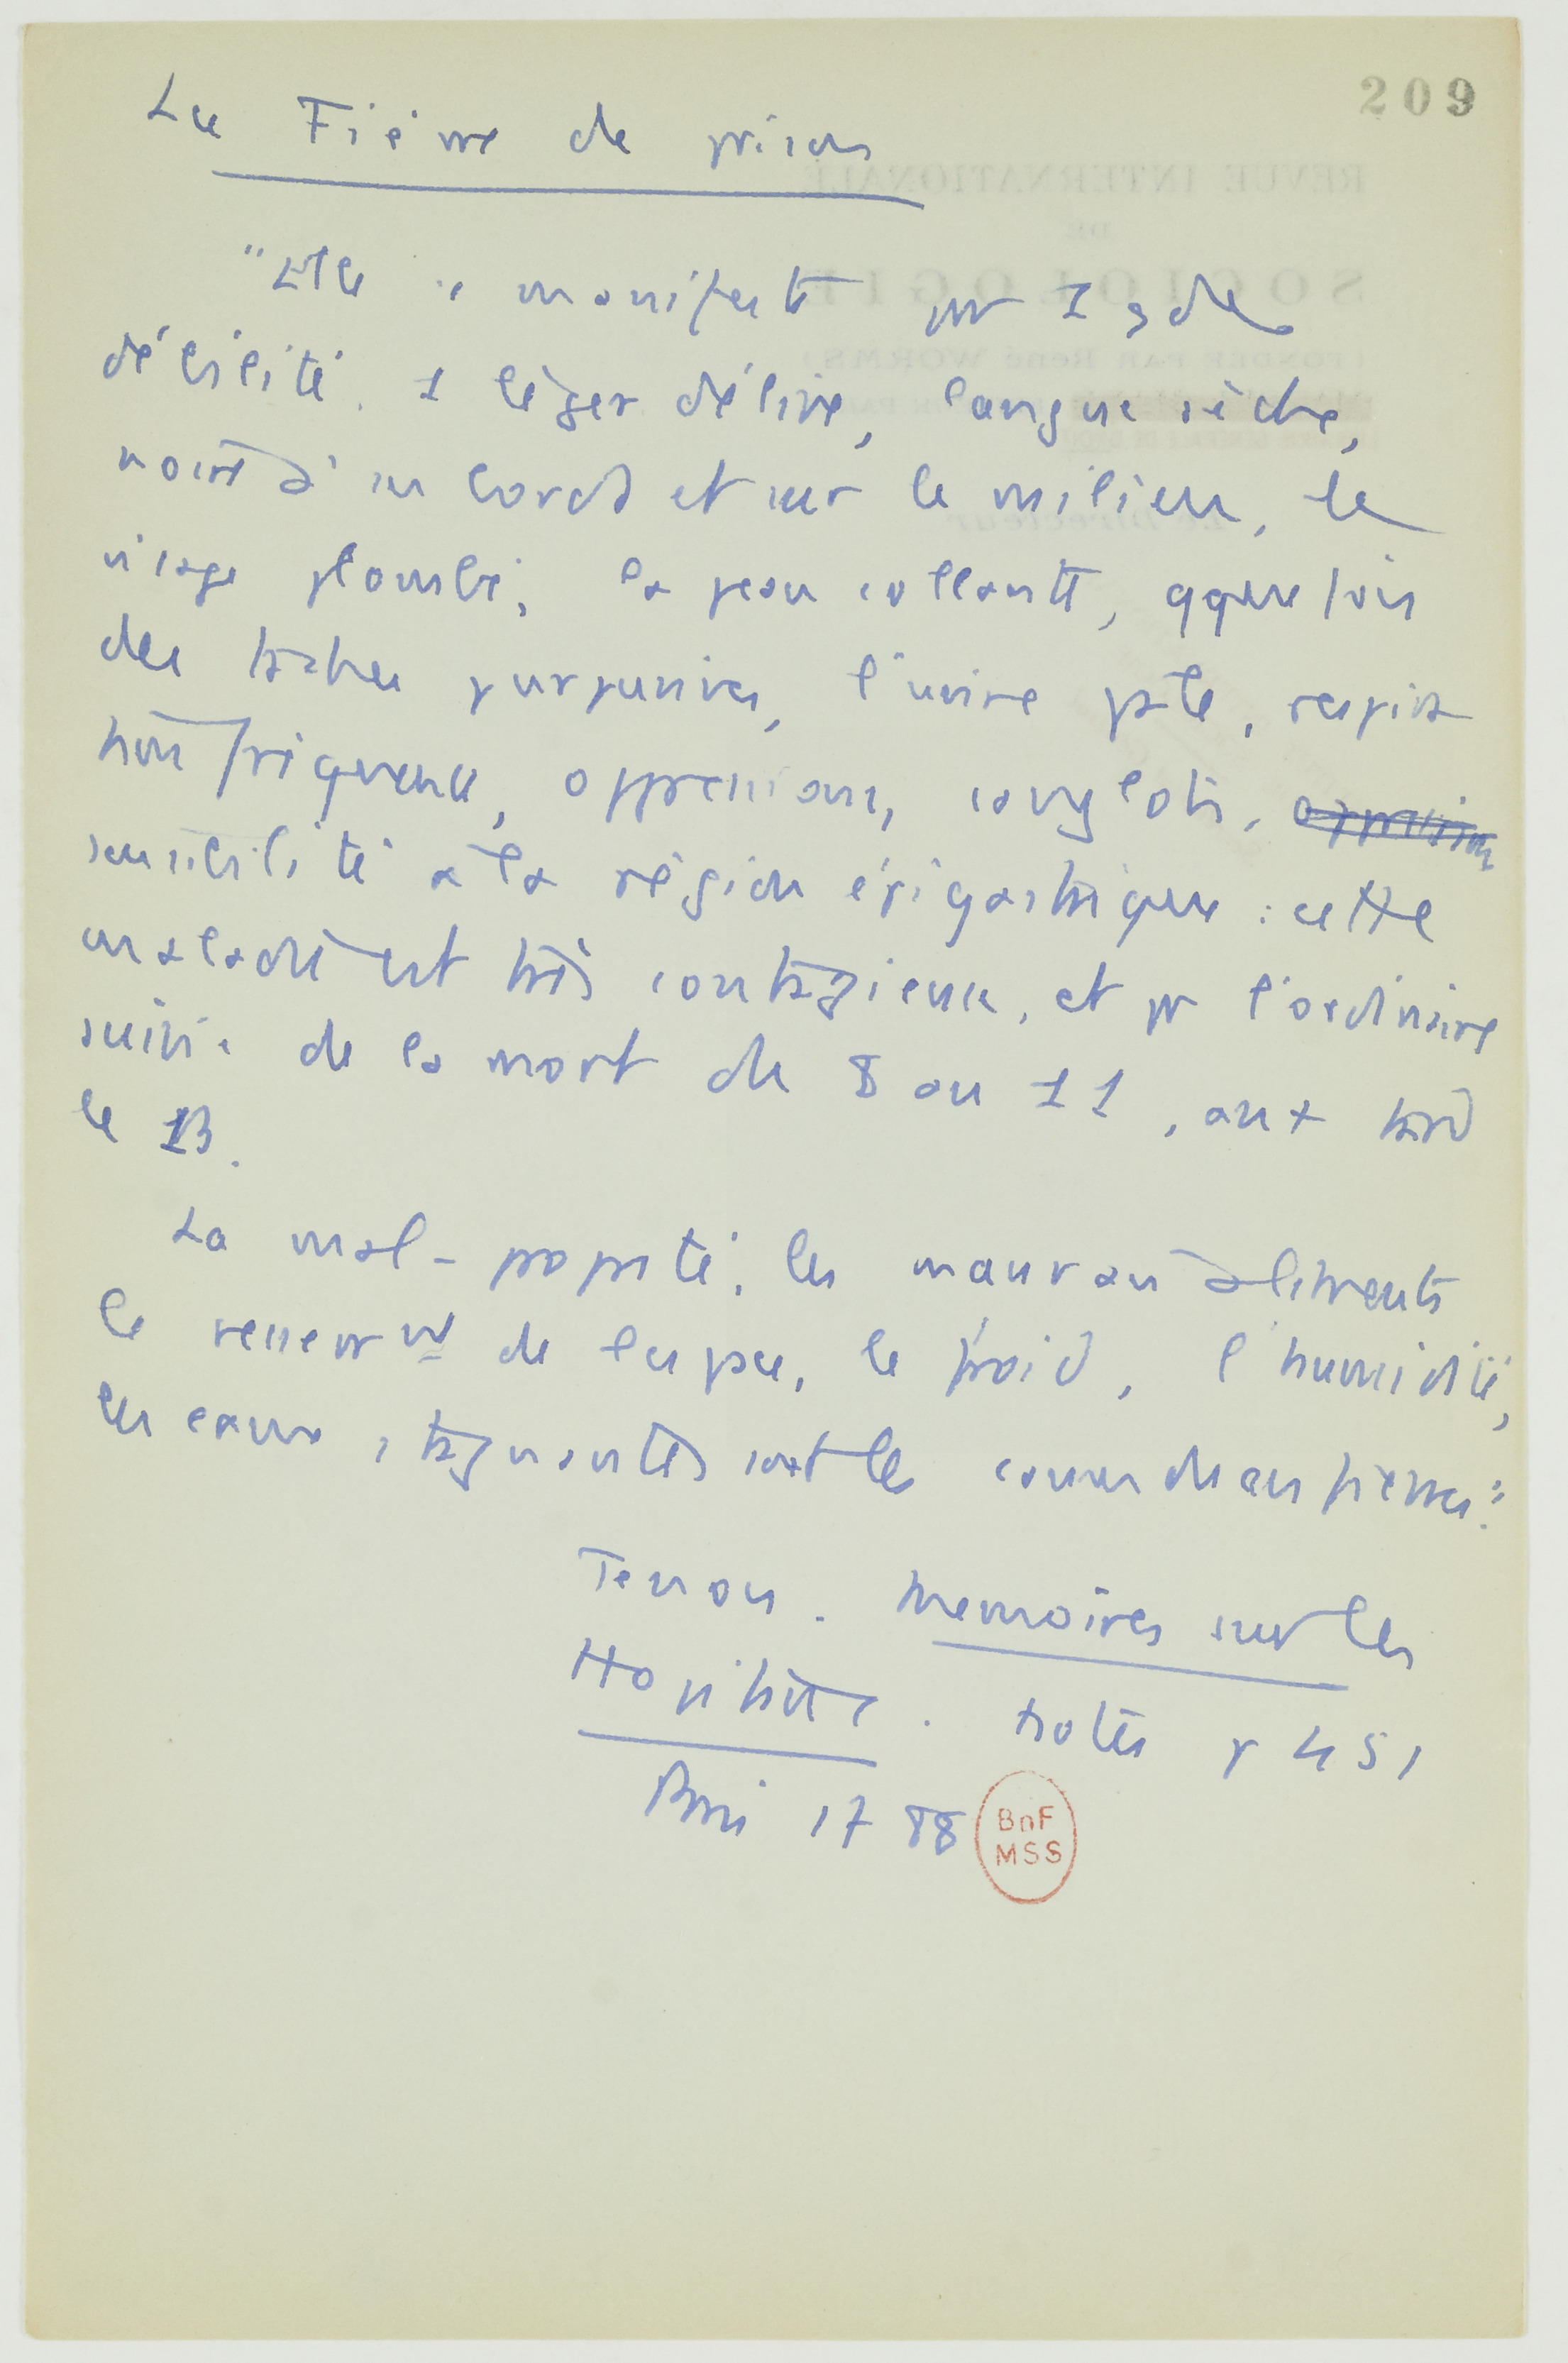 209
La Fièvre de prison
"Elle se manifeste par 1 gde
débilité. 1 léger délire, langue sèche,
noire à ses bords et sur le milieu, le
visage plombé, la peau collante, qquefois
des taches purpurines, l'urine pâle, respira
tion fréquente, oppressions, sanglots,
sensibilité à la région épigastrique : cette
maladie est très contagieuse, et pr l'ordinaire
suivie de la mort du 8 au 11, au + tard
le 13.
La mal-propreté, les mauvais aliments
le resserrmt de l'espace, le froid, l'humidité,
les eaux stagnantes sont les causes de ces fièvres."
Tenon. Mémoires sur les
Hôpitaux. notes p 451
Paris 1788
BnF
MSS
REVUE INTERNATIONALE
DE
SOCIOLOGIE
(FONDÉE PAR René WORMS)
Le Directeur